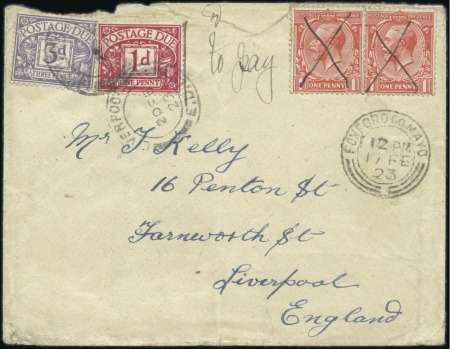 POSTAGE DUE
3d
POSTAGE DUE
1d
ONE PENNY
To pay
ONE PENNY
ONE PENNY
FOXFORD CO. MAYO
12 PM
17 FE
23
Mr J Kelly
16 Penton St
Farnworth St
Liverpool
England